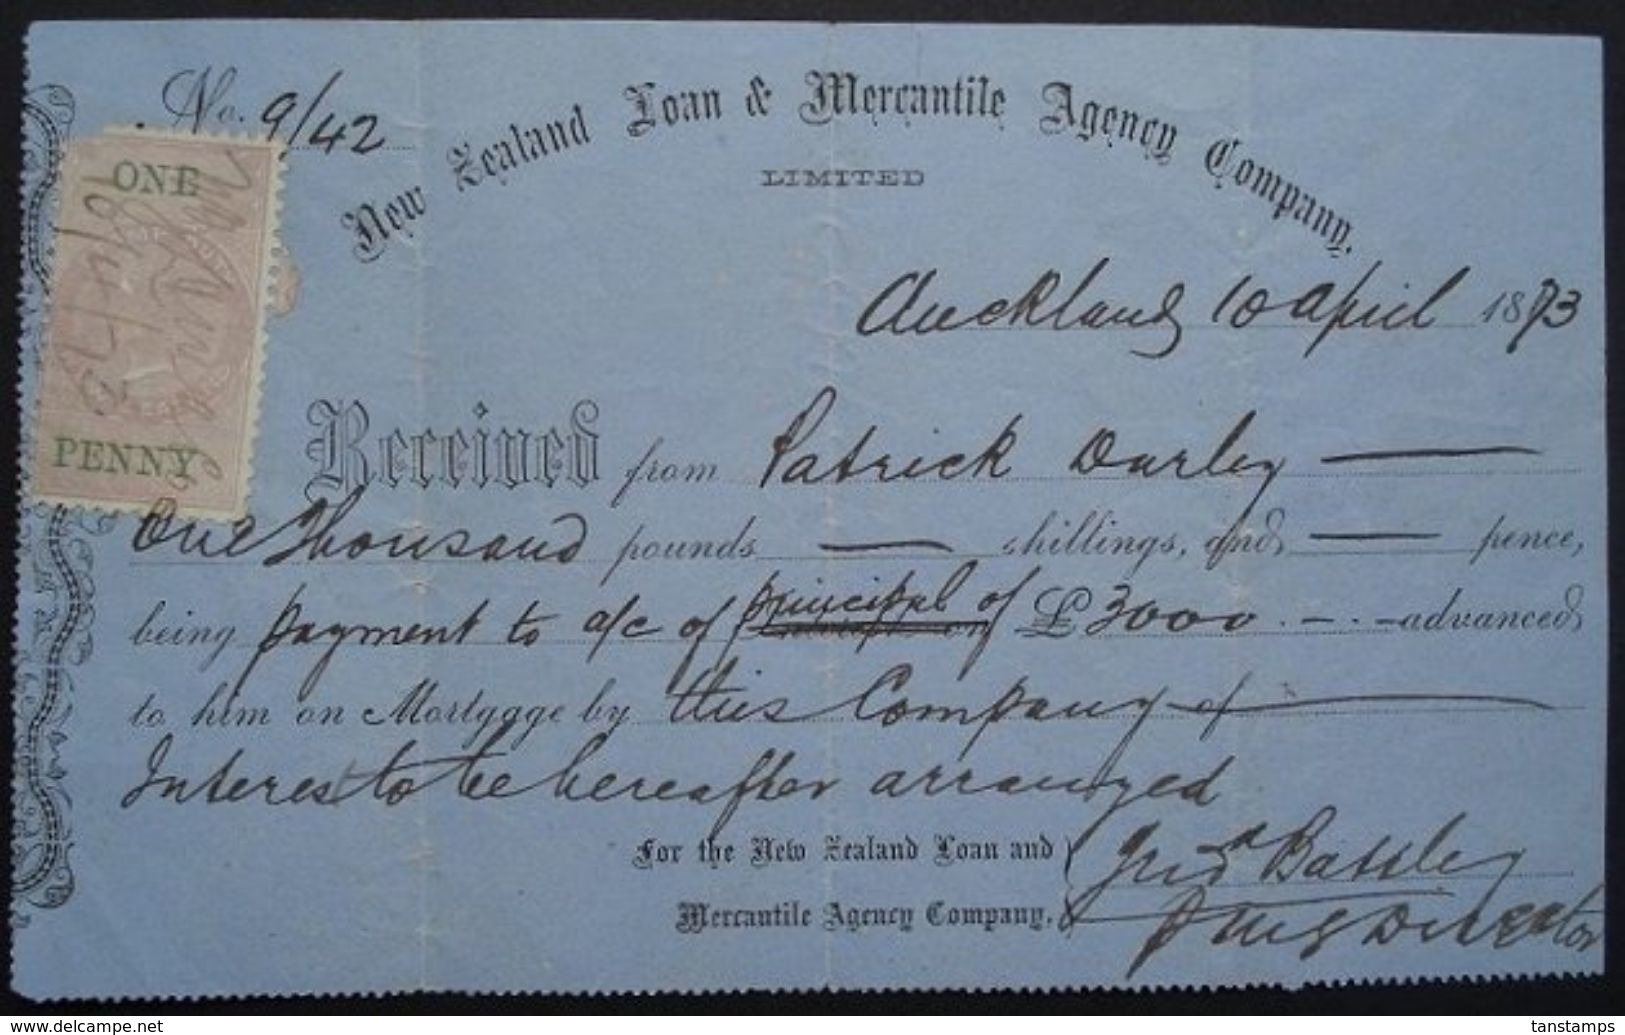 No. 9/42
New Zealand Loan & Mercantile Agency Company.
LIMITED
ONE
PENNY
Auckland 10 April 1873
Received from Patrick Darley
One Thousand pounds — shillings, and — pence,
being payment to a/c of principal of £3000 . - . - advanced
to him on Mortgage by this Company of
Interest to be hereafter arranged
For the New Zealand Loan and
Mercantile Agency Company.
Battley
Director
www.delcampe.net
tanstamps